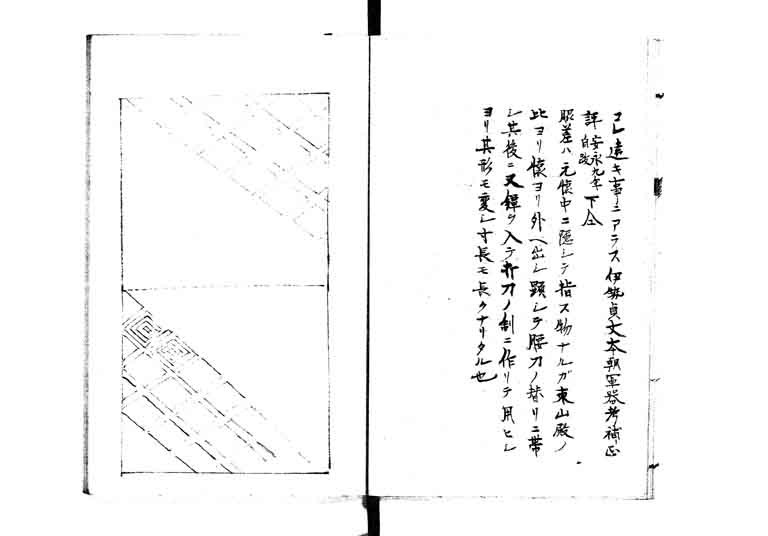 コレ遠キ事ニアラス 伊勢貞丈本朝軍器考補正
評 安永九年自跋 下仝
脇差ハ元懐中ニ隠シテ指ス物ナルガ東山殿ノ
比ヨリ懐ヨリ外ヘ出シ顕シテ腰刀ノ替リニ帯
シ其後ニ又鐔ヲ入テ打刀ノ制ニ作リテ用ヒシ
ヨリ其形モ変シ寸長モ長クナリタル也